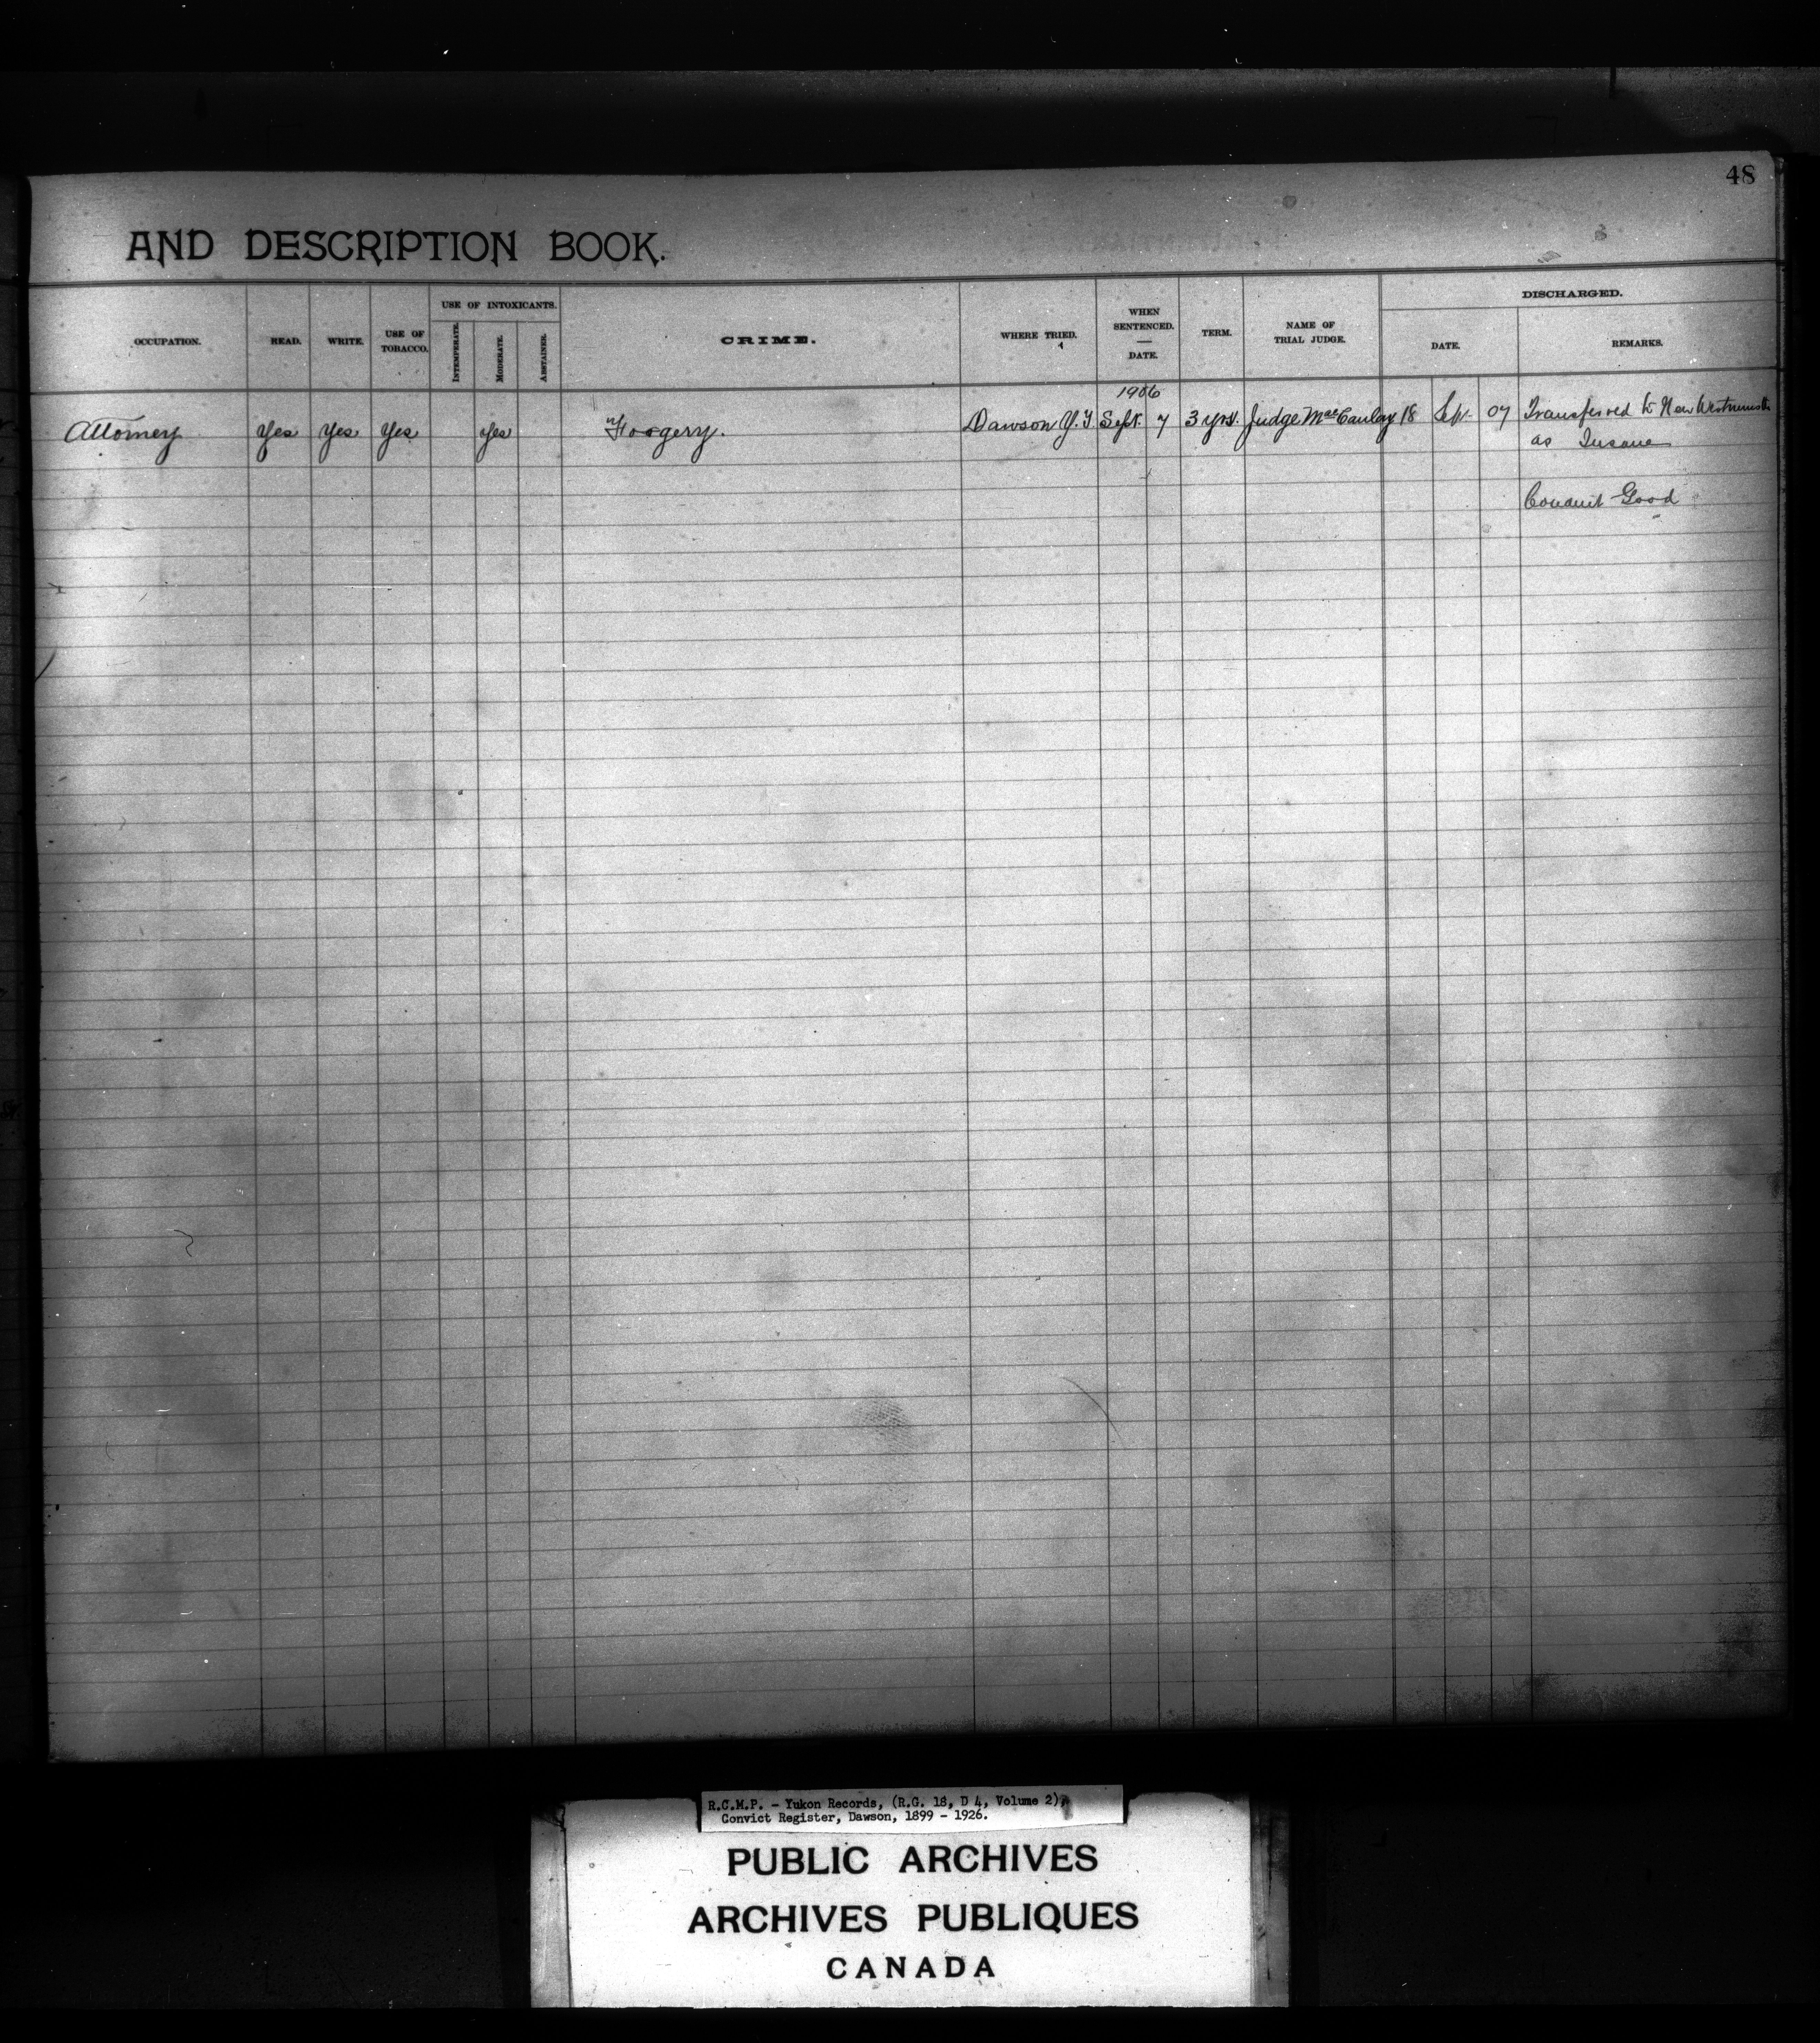 48
AND DESCRIPTION BOOK.
OCCUPATION. READ. WRITE. USE OF TOBACCO. USE OF INTOXICANTS. INTEMPERATE. MODERATE. ABSTAINER. CRIME. WHERE TRIED. WHEN SENTENCED. — DATE. TERM. NAME OF TRIAL JUDGE. DISCHARGED. DATE. REMARKS.
1906
Attorney Yes Yes Yes Yes Forgery. Dawson Y.T. Sept. 7 3 yrs. Judge MacCaulay 18 Sep. 07 Transferred to New Westminster
as Insane
Conduct Good
R.C.M.P. - Yukon Records, (R.G. 18, D 4, Volume 2),
Convict Register, Dawson, 1899 - 1926.
PUBLIC ARCHIVES
ARCHIVES PUBLIQUES
CANADA